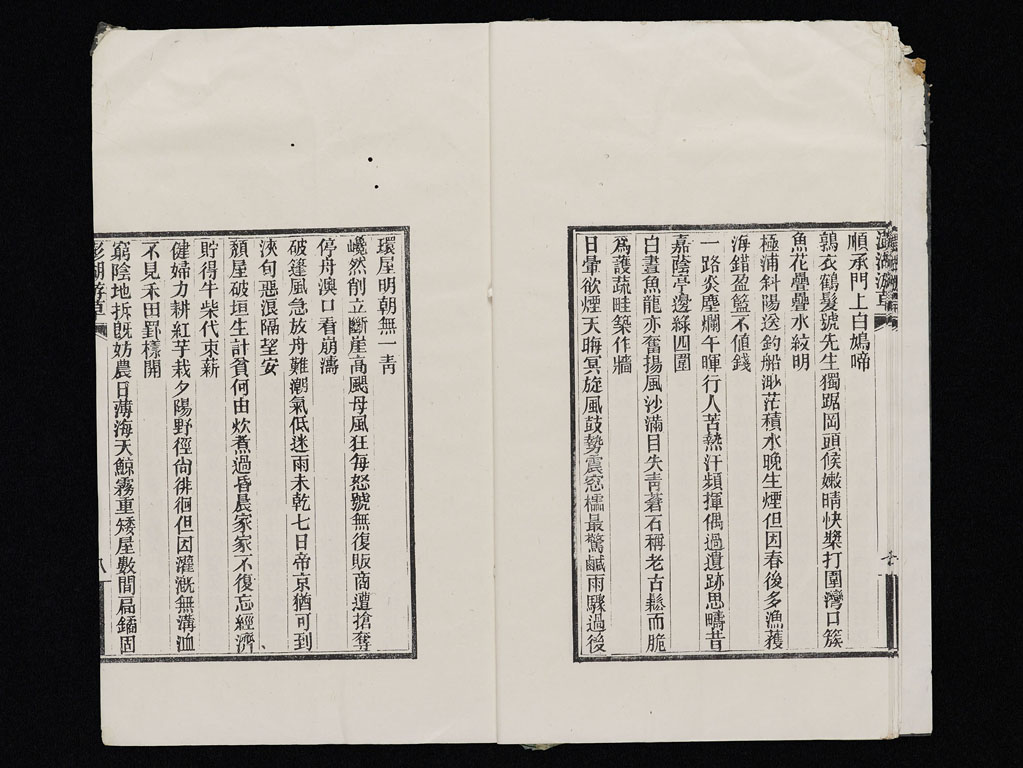 澎湖游草
順承門上白鳩啼
鶉衣鶴髮號先生獨踞岡頭候嫩晴快槳打圍灣口簇
魚花疊疊水紋明
極浦斜陽送釣船渺茫積水晚生煙但因春後多漁獲
海錯盈籃不値錢
一路炎塵爛午暉行人苦熱汗頻揮偶過遺跡思疇昔
嘉蔭亭邊綠四圍
白晝魚龍亦奮揚風沙滿目失靑蒼石稱老古鬆而脆
爲護蔬畦築作牆
日暈欲煙天晦冥旋風鼓勢震窓櫺最驚鹹雨驟過後
環屋明朝無一靑
巉然削立斷崖高颶母風狂每怒號無復販商遭搶奪
停舟澳口看崩濤
破篷風急放舟難潮氣低迷雨未乾七日帝京猶可到
浹旬惡浪隔望安
頹屋破垣生計貧何由炊煮過昏晨家家不復忘經濟
貯得牛柴代束薪
健婦力耕紅芋栽夕陽野徑尙徘徊但因灌漑無溝洫
不見禾田罫樣開
窮陰地拆旣妨農日薄海天鯨霧重矮屋數間扃鐍固
彭湖游草
八